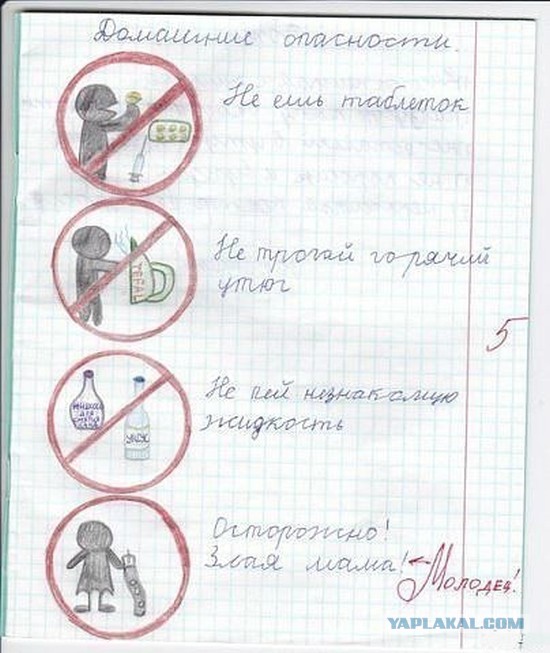 Домашние опасности.
Не ешь таблеток
TEFAL
Не трогай горячий
утюг
5
жидкость
для
снятия
лака
уксус
Не пей незнакомую
жидкость
Осторожно!
Злая мама!
Молодец!
YAPLAKAL.COM